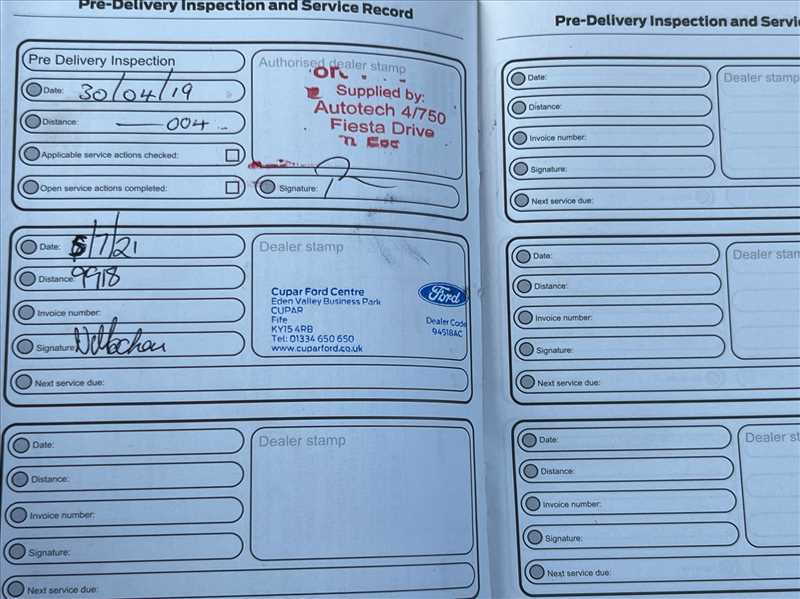 Pre-Delivery Inspection and Service Record
Pre Delivery Inspection
Date: 30/04/19
Distance: 004
Applicable service actions checked:
Open service actions completed:
Authorised dealer stamp
Supplied by:
Autotech 4/750
Fiesta Drive
Signature:
Date: 5/7/21
Distance: 9918
Invoice number:
Signature:
Next service due:
Dealer stamp
Cupar Ford Centre
Eden Valley Business Park
CUPAR
Fife
KY15 4RB
Tel: 01334 650 650
www.cuparford.co.uk
Ford
Dealer Code
94518AC
Date:
Distance:
Invoice number:
Signature:
Next service due:
Dealer stamp
Pre-Delivery Inspection and Servic
Date:
Distance:
Invoice number:
Signature:
Next service due:
Dealer stamp
Date:
Distance:
Invoice number:
Signature:
Next service due:
Dealer stam
Date:
Distance:
Invoice number:
Signature:
Next service due:
Dealer st